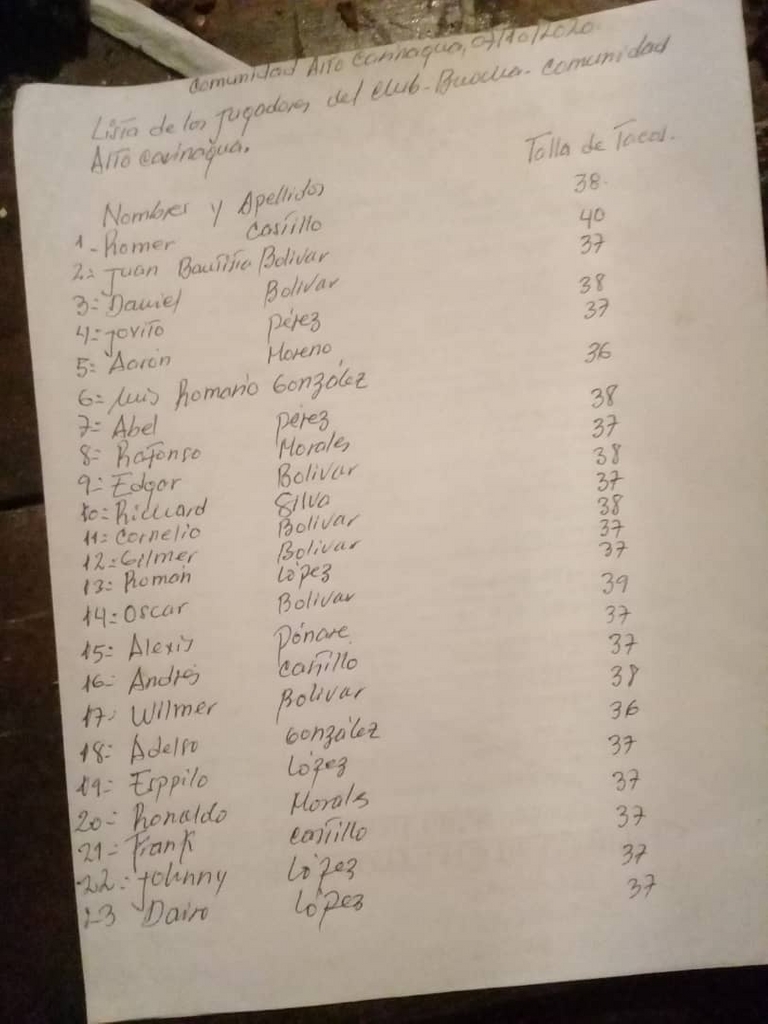 Comunidad Alto Carinagua, 07/10/2020.
Lista de los Jugadores del Club-Buocha- Comunidad
Alto Carinagua.
Nombres y Apellidos Talla de Tacos.
1-Romer Castillo 38.
2= Juan Bautista Bolivar 40
3= Daniel Bolivar 37
4= Jovito Pérez 38
5= Aarón Moreno 37
6= Luis Romario González 36
7= Abel Pérez 38
8= Rafonso Morales 37
9= Edgar Bolivar 38
10= Richard Silva 37
11= Cornelio Bolivar 38
12= Gilmer Bolivar 37
13= Román López 37
14= Oscar Bolivar 39
15= Alexis Pónare 37
16= Andrés Castillo 37
17= Wilmer Bolivar 38
18= Adelso González 36
19= Esppilo López 37
20= Ronaldo Morales 37
21= Frank Castillo 37
22= Johnny López 37
23 Dairo López 37